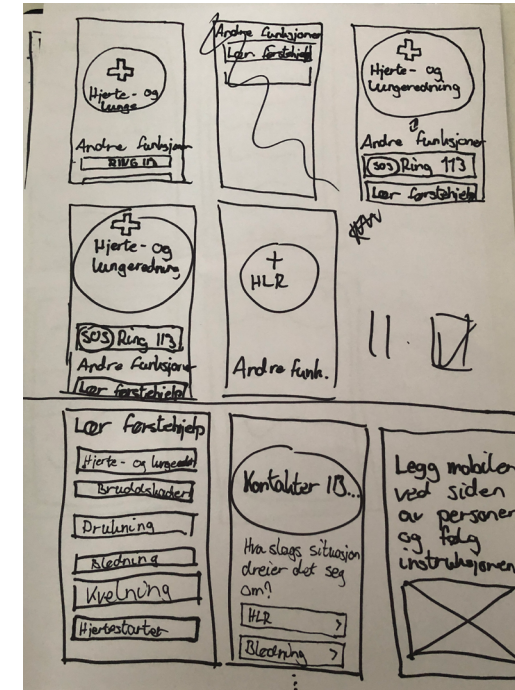 Hjerte- og
lunge
Andre funksjoner
RING 113
Andre funksjoner
Lær førstehjelp
Hjerte- og
lungeredning
Andre funksjoner
SOS Ring 113
Lær førstehjelp
Hjerte- og
lungeredning
SOS Ring 113
Andre funksjoner
Lær førstehjelp
HLR
Andre funk.
Lær førstehjelp
Hjerte- og
Bruddskader
Drukning
Blødning
Kvelning
Hjertestarter
Kontakter 113...
Hva slags situasjon
dreier det seg
om?
HLR >
Blødning >
Legg mobilen
ved siden
av personen
og følg
instruksjonene